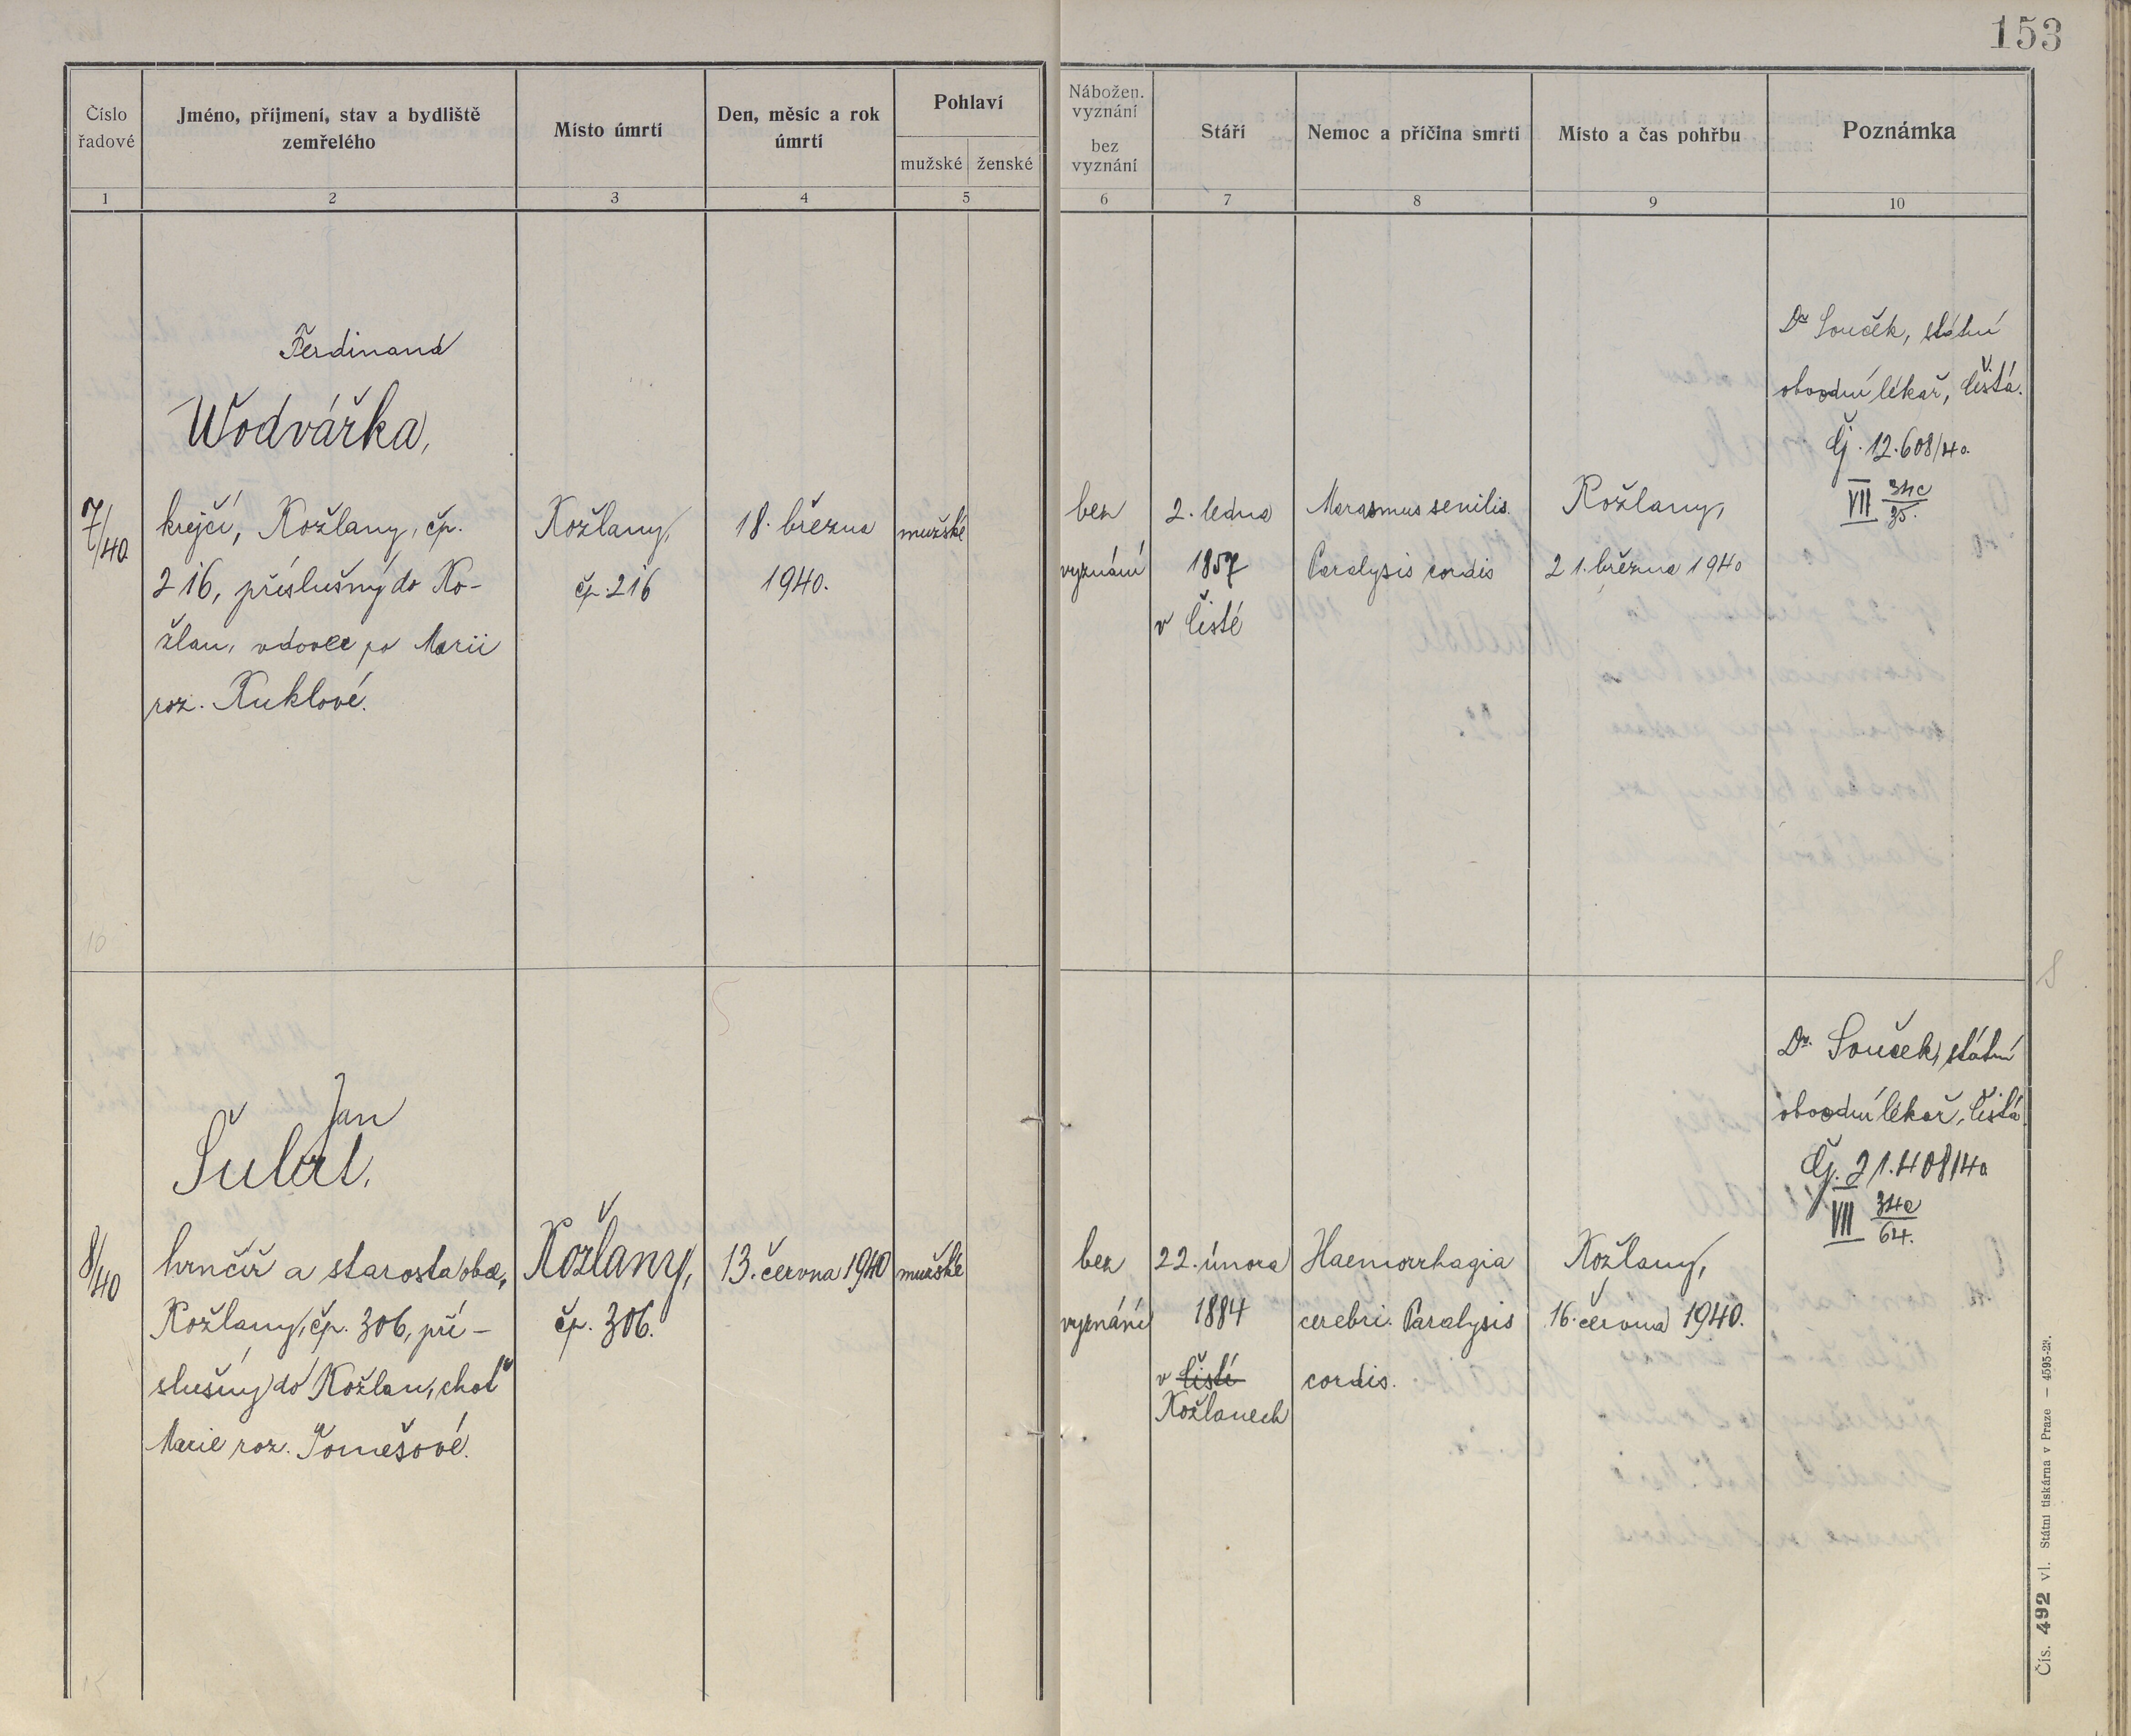 153
Číslo
řadové
Jméno, příjmení, stav a bydliště
zemřelého
Místo úmrtí
Den, měsíc a rok
úmrtí
Pohlaví
mužské ženské
Nábožen.
vyznání
bez
vyznání
Stáří
Nemoc a příčina smrti
Místo a čas pohřbu
Poznámka
1 2 3 4 5 6 7 8 9 10
7/40
Ferdinand
Wodvářka,
krejčí, Kožlany, čp.
216, příslušný do Ko-
žlan, vdovec po Marii
roz. Kuklové.
Kožlany,
čp. 216
18. března
1940.
mužské
bez
vyznání
2. ledna
1857
v Čisté
Marasmus senilis.
Paralysis cordis
Kožlany,
21. března 1940
Dr Souček, státní
obvodní lékař, Čistá.
Čj. 12.608/40.
VII 34c
35.
10
8/40
Jan
Šulc
hrnčíř a starosta obce,
Kožlany, čp. 306, pří-
slušný do Kožlan, choť
Marie roz. Tomešové.
Kožlany,
čp. 306.
13. června 1940
mužské
bez
vyznání
22. února
1884
v Čisté
Kožlanech
Haemorrhagia
cerebri. Paralysis
cordis.
Kožlany,
16. června 1940.
Dr. Souček, státní
obvodní lékař, Čistá.
Čj. 21.408/40
VII 34c
64.
Čís. 492 vl. Státní tiskárna v Praze — 4595-28.